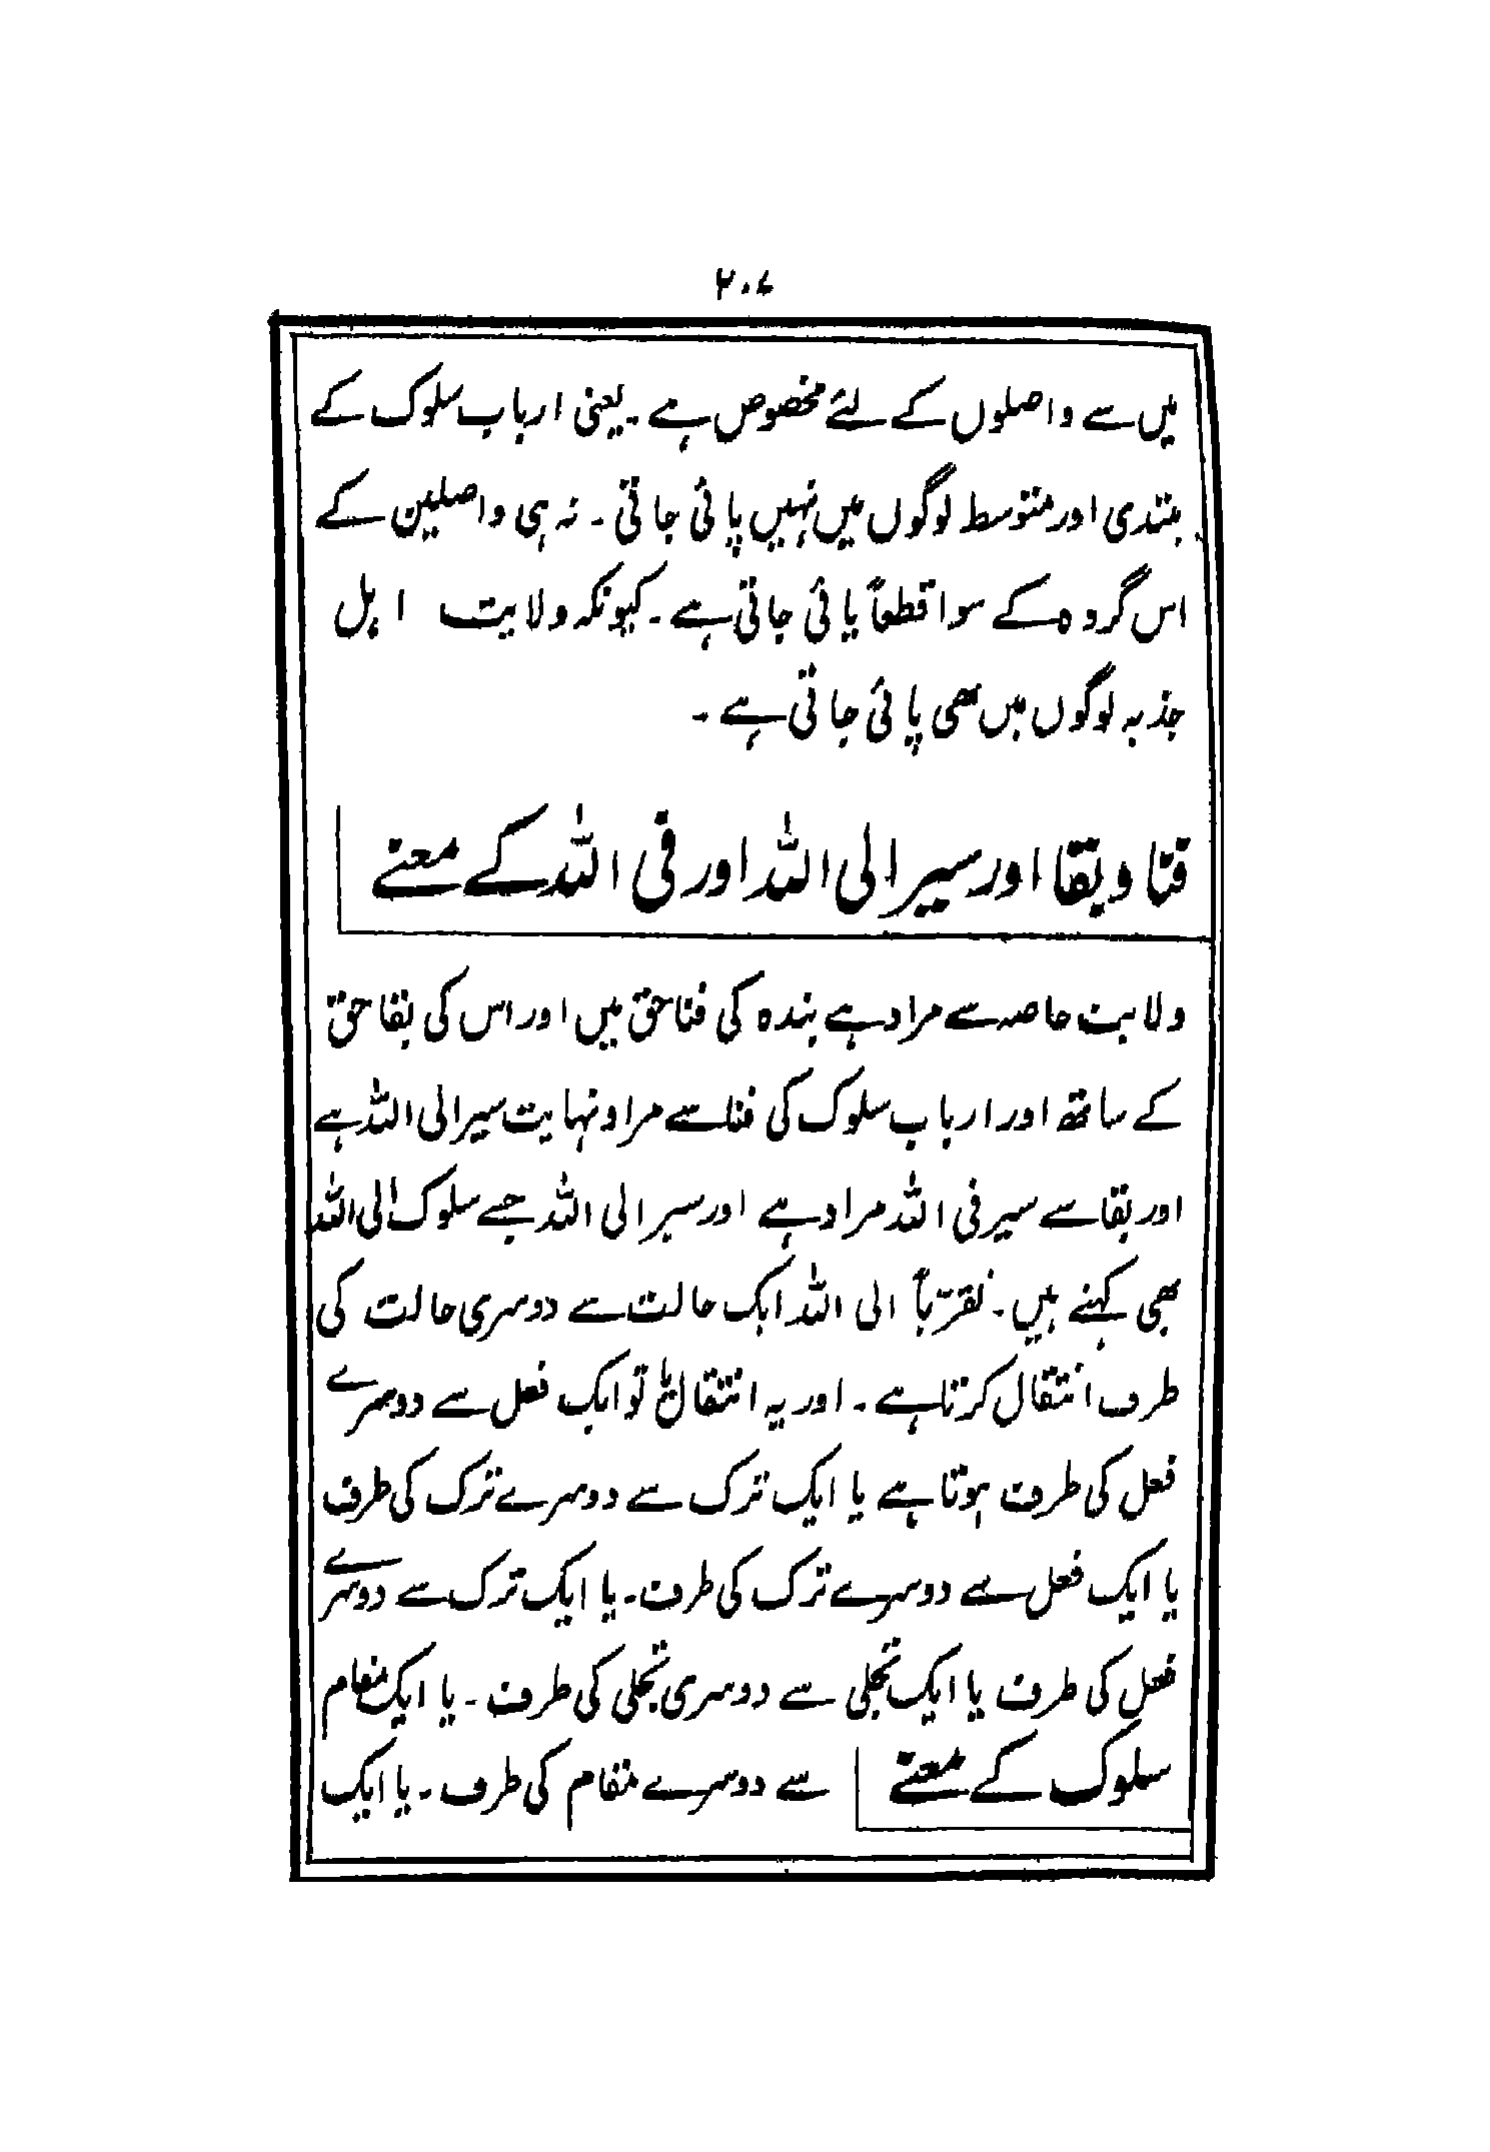 ۲۰۷
میں سے واصلوں کے لئے مخصوص ہے ۔ یعنی ارباب سلوک کے
مبتدی اور متوسط لوگوں میں نہیں پائی جاتی ۔ نہ ہی واصلین کے
اس گروہ کے سوا قطعاً پائی جاتی ہے ۔ کیونکہ ولایت اہل
جذبہ لوگوں میں بھی پائی جاتی ہے ۔
فنا و بقا اور سیر الی اللہ اور فی اللہ کے معنے
ولایت خاصہ سے مراد ہے بندہ کی فنا حق میں اور اس کی بقا حق
کے ساتھ اور ارباب سلوک کی فنا سے مراد نہایت سیر الی اللہ ہے
اور بقا سے سیر فی اللہ مراد ہے اور سیر الی اللہ جسے سلوک الی اللہ
بھی کہتے ہیں ۔ تقرّباً الی اللہ ایک حالت سے دوسری حالت کی
طرف انتقال کرنا ہے ۔ اور یہ انتقال یا تو ایک فعل سے دوسرے
فعل کی طرف ہوتا ہے یا ایک ترک سے دوسرے ترک کی طرف
یا ایک فعل سے دوسرے ترک کی طرف ۔ یا ایک ترک سے دوسرے
فعل کی طرف یا ایک تجلی سے دوسری تجلی کی طرف ۔ یا ایک مقام
سلوک کے معنے
سے دوسرے مقام کی طرف ۔ یا ایک